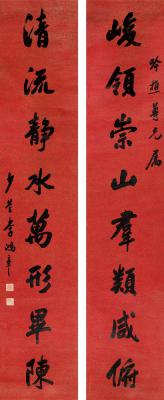 峻領崇山羣類咸俯
吟樵尊兄属
清流靜水萬形畢陳
少荃李鴻章